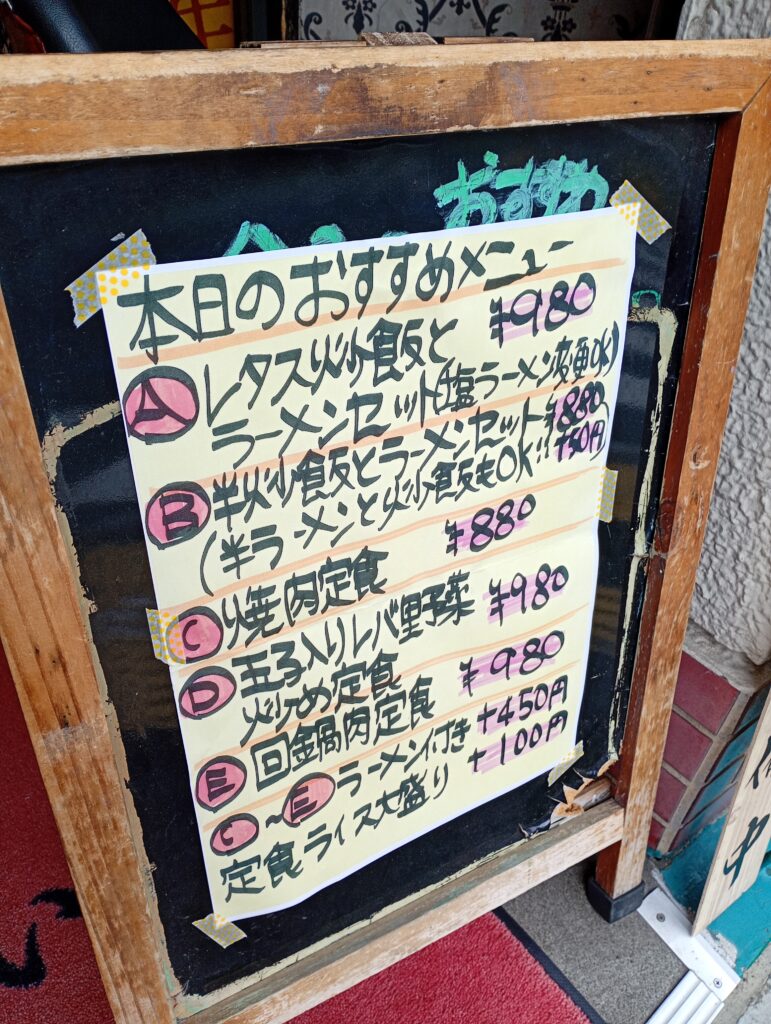 おすすめ
本日のおすすめメニュー
A レタス炒飯と ¥980
ラーメンセット(塩ラーメン変更OK)
B 半炒飯とラーメンセット ¥880
(半ラーメンと炒飯もOK!! +50円
C 焼肉定食 ¥880
D 玉子入りレバ野菜 ¥980
炒め定食
E 回鍋肉定食 ¥980
C~E ラーメン付き +450円
定食ライス大盛り +100円
中